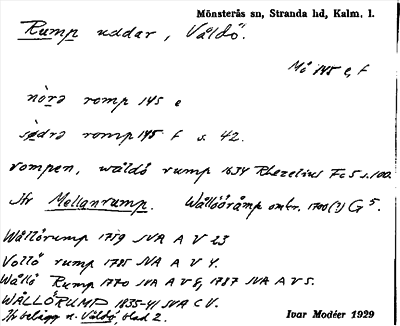 Mönsterås sn, Stranda hd, Kalm. l.
Rump uddar, Våldö.
Mö 145 e, f
nörə romp 145 e
sødrə romp 145 f s. 42.
rompen, wåldö rump 1634 Rhezelius Fc 5 s. 100.
Jfr Mellanrump. Wållööråmp omkr. 1700(?) G 5.
Wållörump 1759 SVA A V 23
Vollö rump 1785 SVA A V 4.
Wållö Rump 1770 SVA A V 8, 1787 SVA A V 5.
WÅLLÖRUMP 1835-41 SVA C V.
Jfr belägg u. Våldö, blad 2.
Ivar Modéer 1929